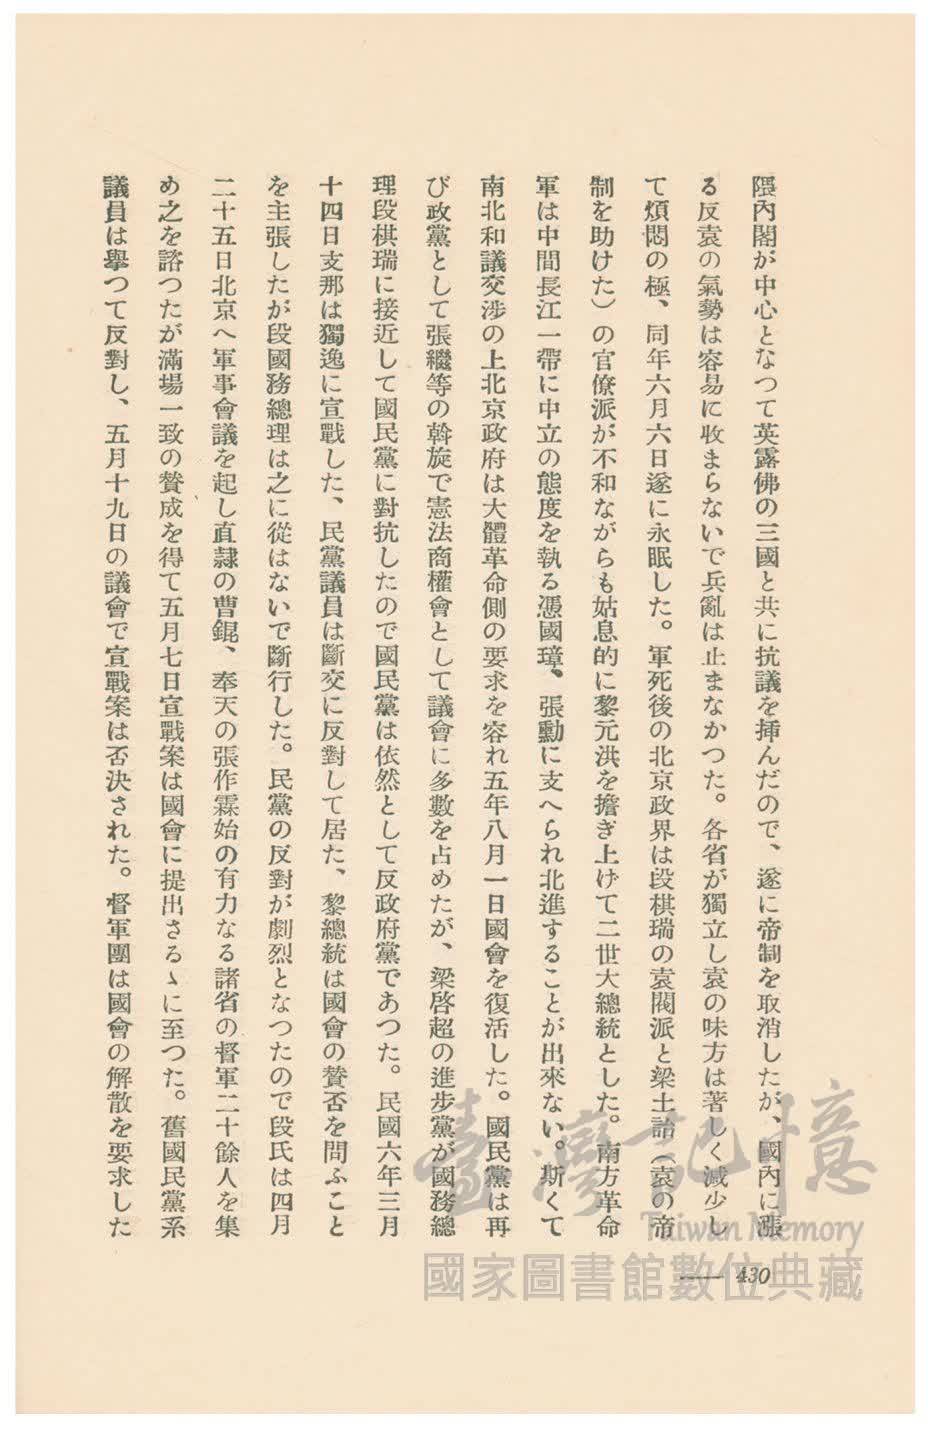 隈內閣が中心となつて英露佛の三國と共に抗議を挿んだので、遂に帝制を取消したが、國內に漲
る反袁の氣勢は容易に收まらないで兵亂は止まなかつた。各省が獨立し袁の味方は著しく減少し
て煩悶の極、同年六月六日遂に永眠した。軍死後の北京政界は段棋瑞の袁閥派と梁士詒（袁の帝
制を助けた）の官僚派が不和ながらも姑息的に黎元洪を擔ぎ上げて二世大總統とした。南方革命
軍は中間長江一帶に中立の態度を執る憑國璋、張勳に支へられ北進することが出來ない。斯くて
南北和議交涉の上北京政府は大體革命側の要求を容れ五年八月一日國會を復活した。國民黨は再
び政黨として張繼等の斡旋で憲法商權會として議會に多數を占めたが、梁啓超の進步黨が國務總
理段棋瑞に接近して國民黨に對抗したので國民黨は依然として反政府黨であつた。民國六年三月
十四日支那は獨逸に宣戰した、民黨議員は斷交に反對して居た、黎總統は國會の贊否を問ふこと
を主張したが段國務總理は之に從はないで斷行した。民黨の反對が劇烈となつたので段氏は四月
二十五日北京へ軍事會議を起し直隷の曹錕、奉天の張作霖始の有力なる諸省の督軍二十餘人を集
め之を諮つたが滿場一致の贊成を得て五月七日宣戰案は國會に提出さるゝに至つた。舊國民黨系
議員は擧つて反對し、五月十九日の議會で宣戰案は否決された。督軍團は國會の解散を要求した
— 430
臺灣記憶
Taiwan Memory
國家圖書館數位典藏